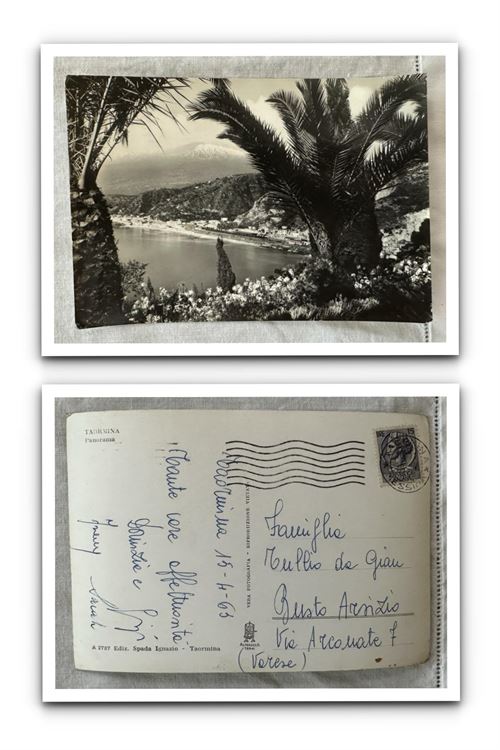 TAORMINA
Panorama
Taormina 15-4-63
Tante care affettuosità
VERA FOTOGRAFIA - RIPRODUZIONE VIETATA
Famiglia
Tullio da Gian
Busto Arsizio
Via Arconate 7
(Varese)
A 2727 Ediz. Spada Ignazio - Taormina